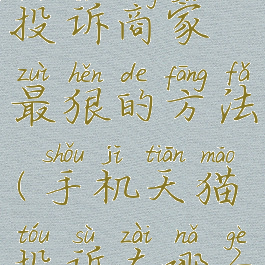 投诉商家
zuì hěn de fāng fǎ
最狠的方法
shǒu jī tiān māo
(手机天猫
tóu sù zài nǎ gè
投诉在哪个